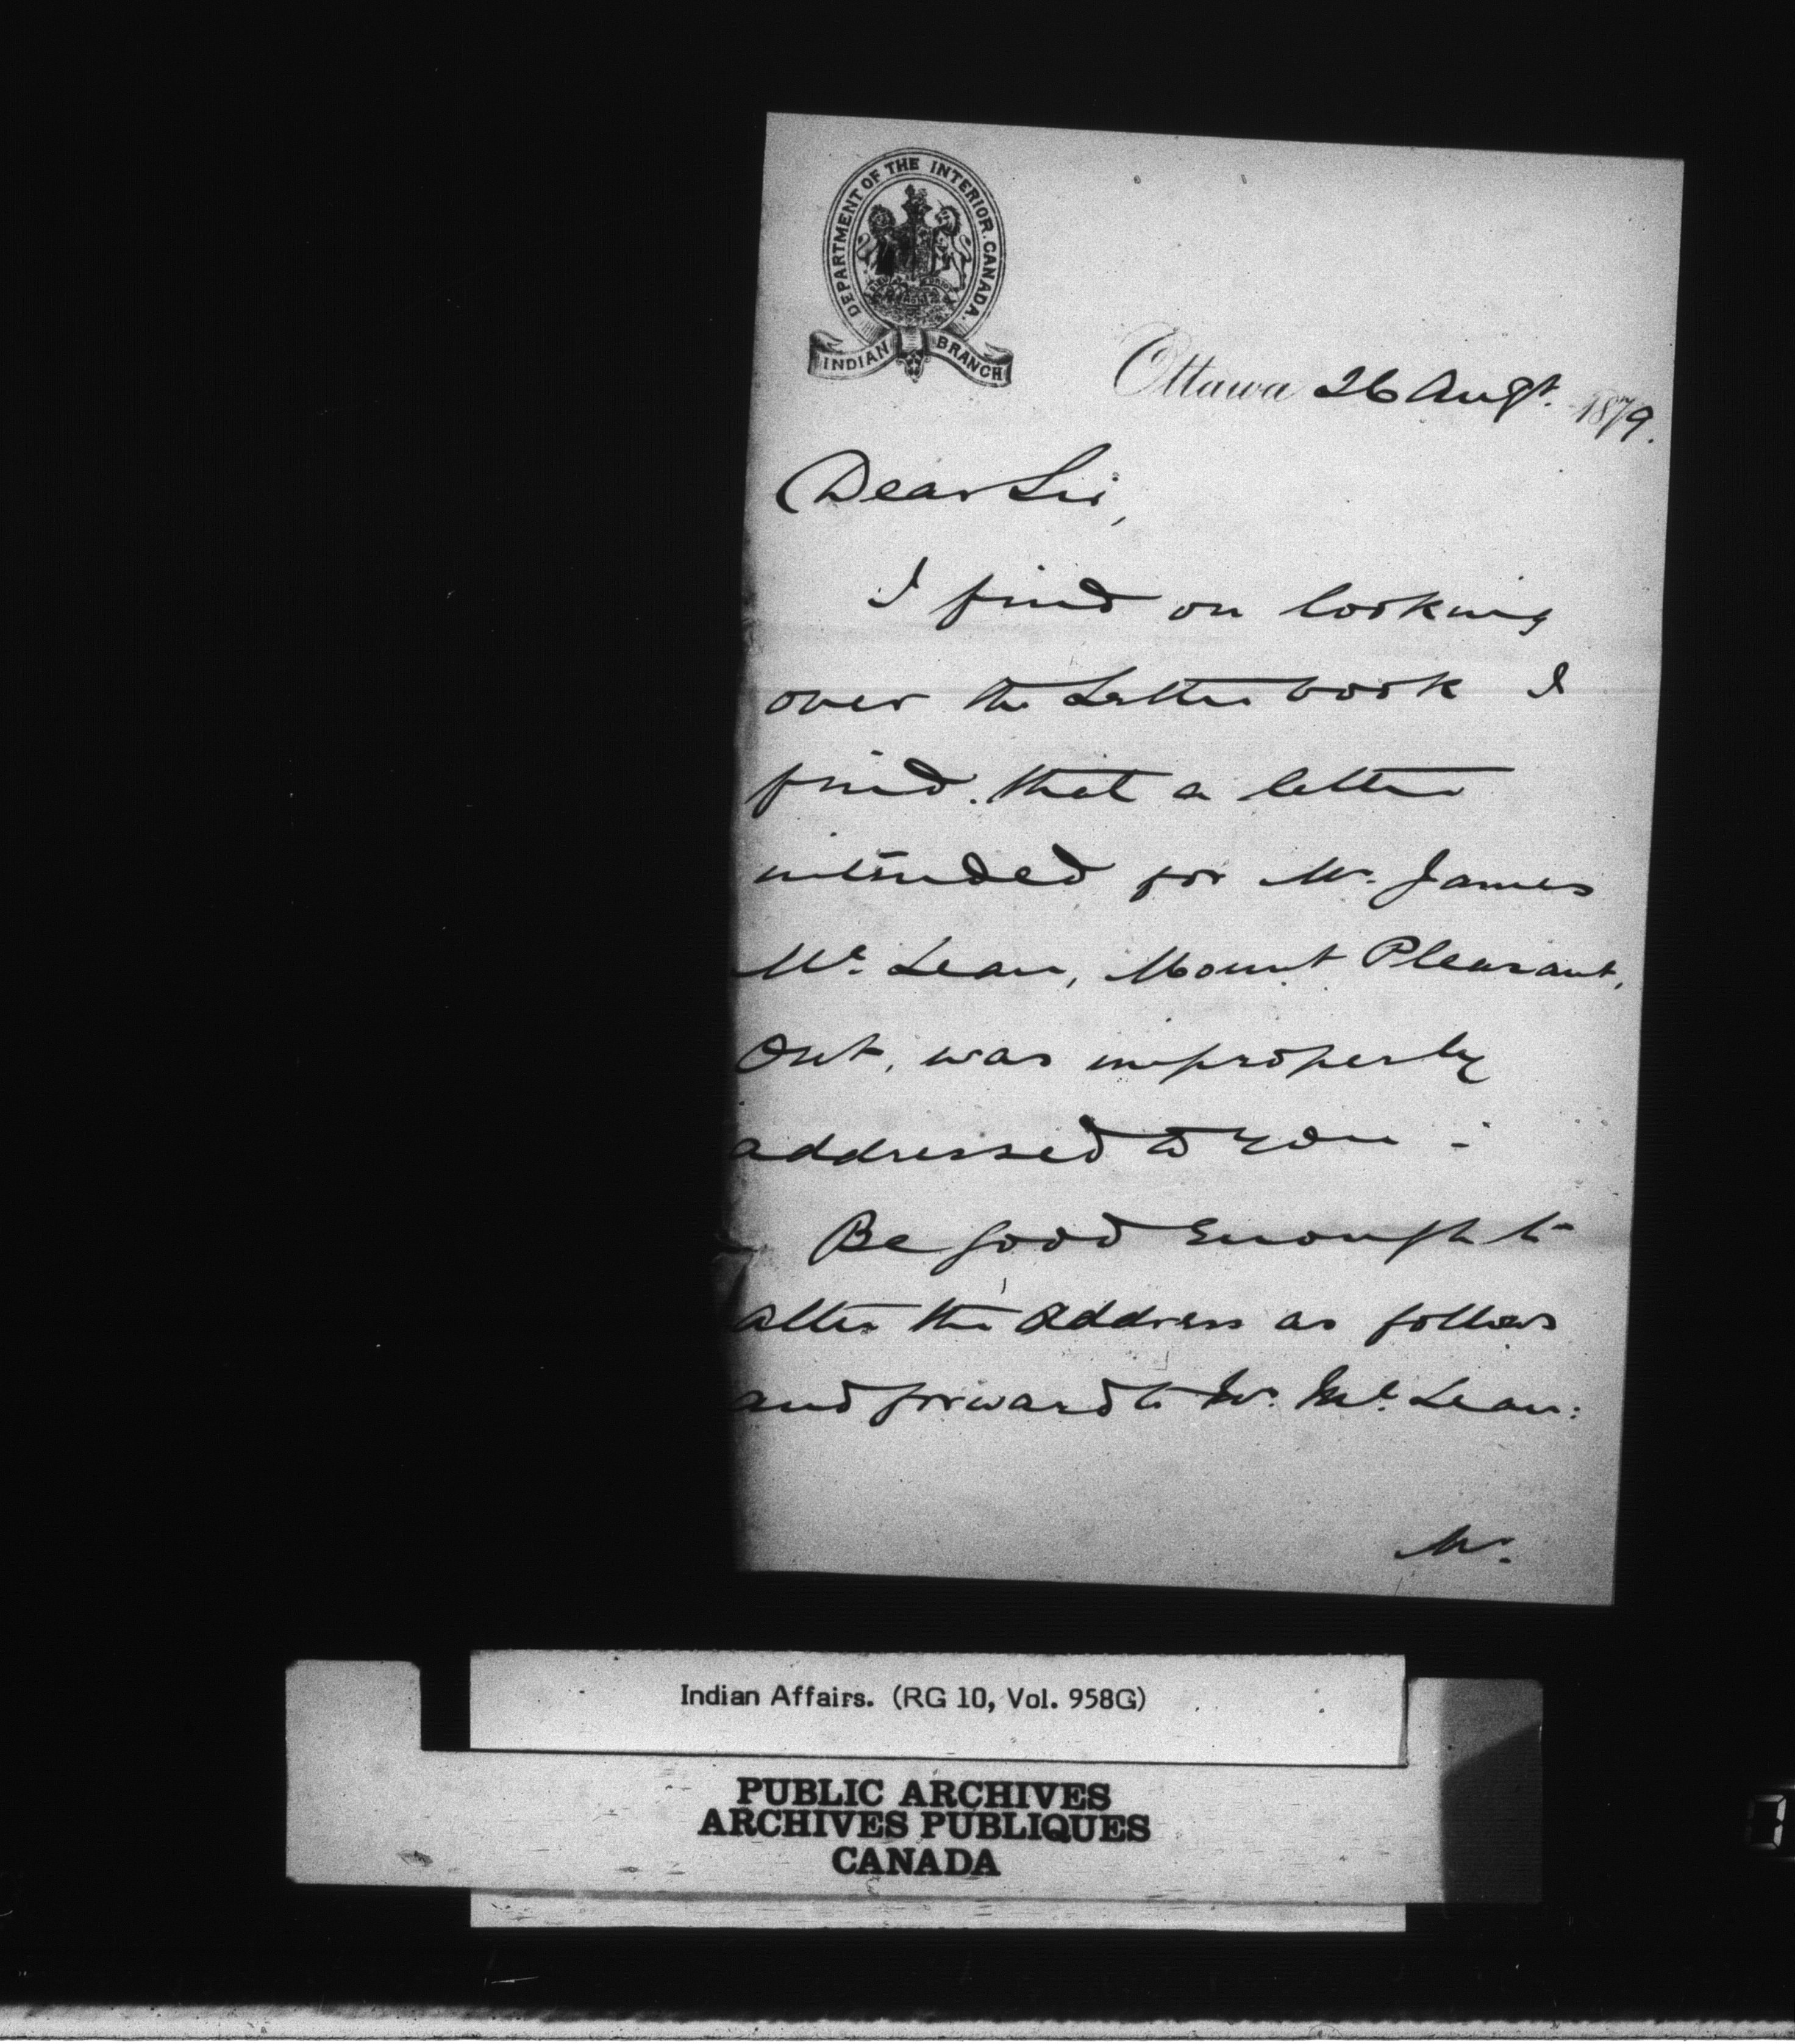 DEPARTMENT OF THE INTERIOR. CANADA.
INDIAN BRANCH
Ottawa 26 Augt. 1879.
Dear Sir,
I find on looking
over the Letter book I
find that a letter
intended for Mr. James
Mc. Lean, Mount Pleasant,
Ont, was improperly
addressed to you -
Be good enough to
alter the address as follows
and forward to Mr. Mc. Lean:
Mr.
Indian Affairs. (RG 10, Vol. 958G)
PUBLIC ARCHIVES
ARCHIVES PUBLIQUES
CANADA